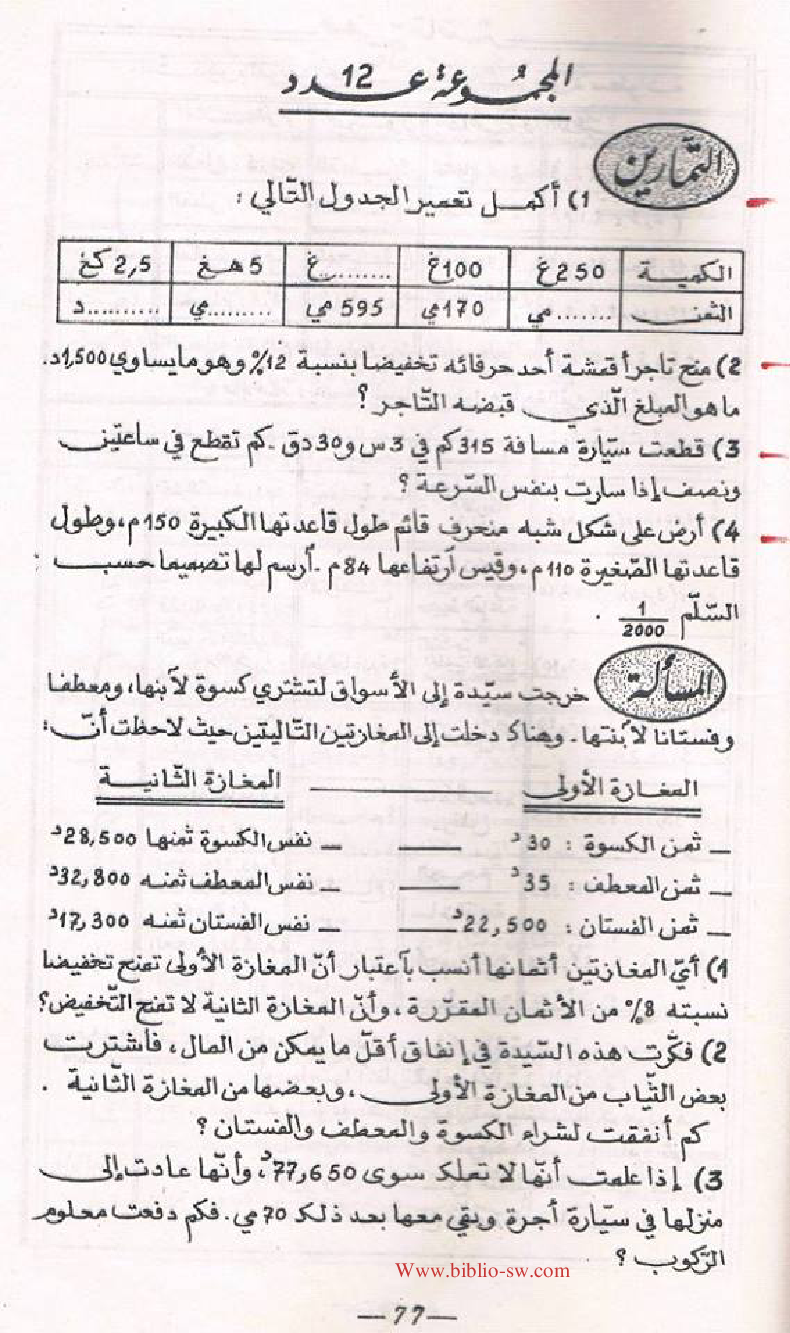 المجموعة عدد 12
التمارين
1) أكمل تعمير الجدول التّالي :
الكمية | 250 غ | 100 غ | ........ غ | 5 هغ | 2,5 كغ
الثمن | ....... مي | 170 مي | 595 مي | ......... مي | .......... د
2) منح تاجر أقمشة أحد حرفائه تخفيضا بنسبة 12% وهو ما يساوي 1,500د.
ما هو المبلغ الّذي قبضه التّاجر ؟
3) قطعت سيّارة مسافة 315 كم في 3 س و 30 دق . كم تقطع في ساعتين
ونصف إذا سارت بنفس السّرعة ؟
4) أرض على شكل شبه منحرف قائم طول قاعدتها الكبيرة 150 م، وطول
قاعدتها الصّغيرة 110 م، وقيس ٱرتفاعها 84 م . ٱرسم لها تصميما حسب
السّلّم 1/2000 .
المسألة
خرجت سيّدة إلى الأسواق لتشتري كسوة لٱبنها، ومعطفا
وفستانا لٱبنتها . وهناك دخلت إلى المغازتين التّاليتين حيث لاحظت أنّ :
المغازة الأولى ــــــ المغازة الثّانية
ـ ثمن الكسوة : 30د ـــ ـ نفس الكسوة ثمنها 28,500د
ـ ثمن المعطف : 35د ـــ ـ نفس المعطف ثمنه 32,800د
ـ ثمن الفستان : 22,500د ـــ ـ نفس الفستان ثمنه 17,300د
1) أيّ المغازتين أثمانها أنسب بٱعتبار أنّ المغازة الأولى تمنح تخفيضا
نسبته 8% من الأثمان المقرّرة ، وأنّ المغازة الثانية لا تمنح التّخفيض؟
2) فكّرت هذه السّيّدة في إنفاق أقلّ ما يمكن من المال ، فٱشترت
بعض الثّياب من المغازة الأولى ، وبعضها من المغازة الثّانية .
كم أنفقت لشراء الكسوة والمعطف والفستان ؟
3) إذا علمت أنّها لا تملك سوى 77,650د، وأنّها عادت إلى
منزلها في سيّارة أجرة وبقي معها بعد ذلك 70 مي . فكم دفعت معلوم
الرّكوب ؟
Www.biblio-sw.com
— 77 —